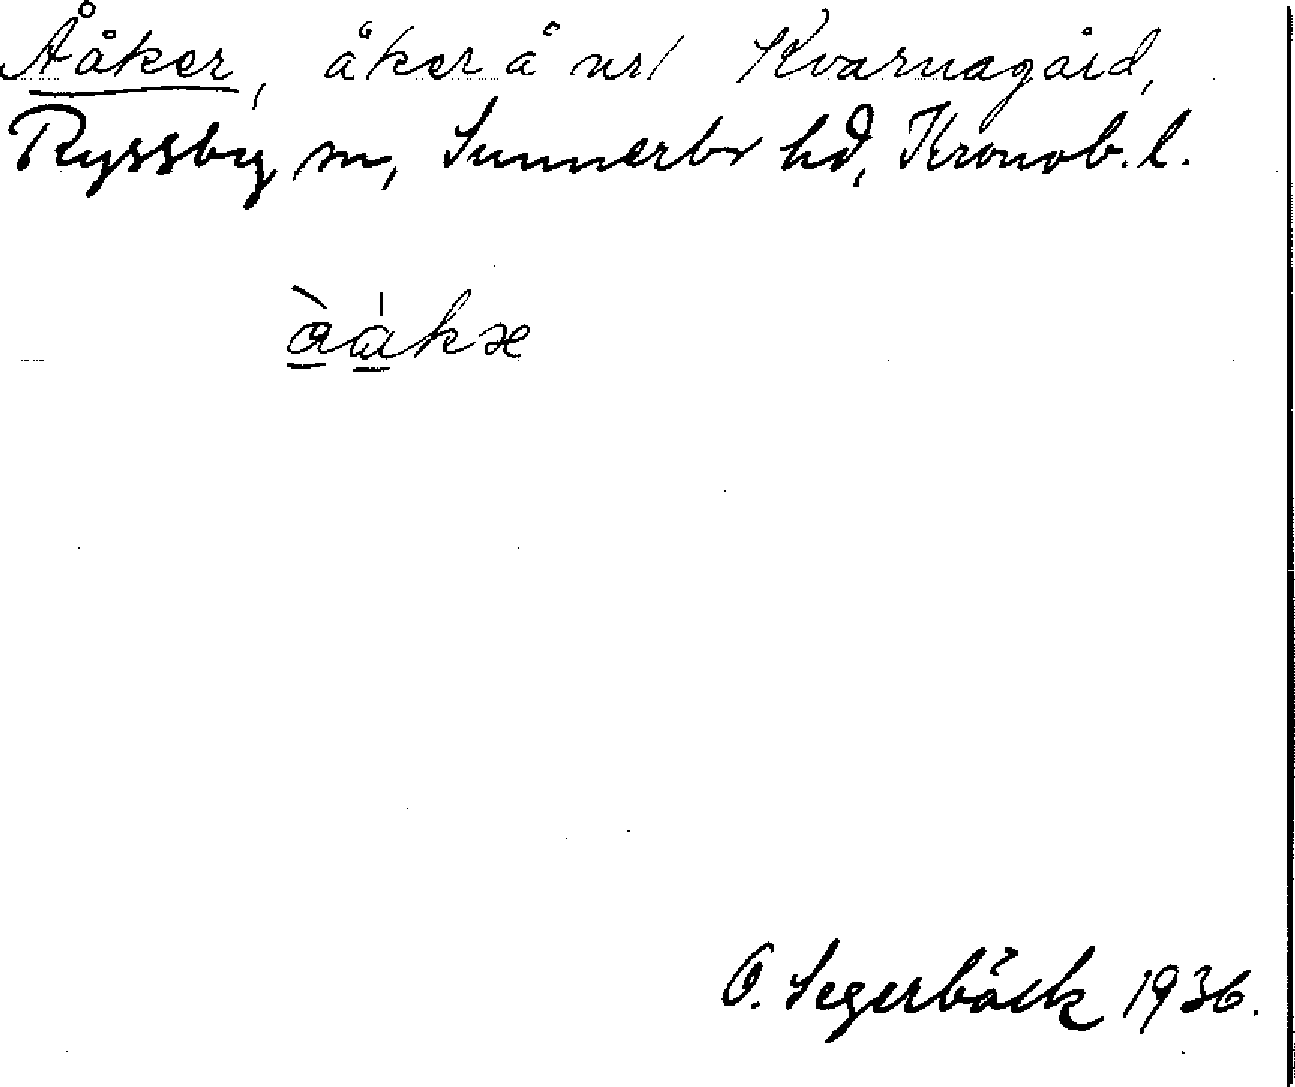 Ååker, åker å nr 1 Kvarnagård,
Ryssby sn, Sunnerbo hd, Kronob. l.
åàkæ
O. Segerbäck 1936.